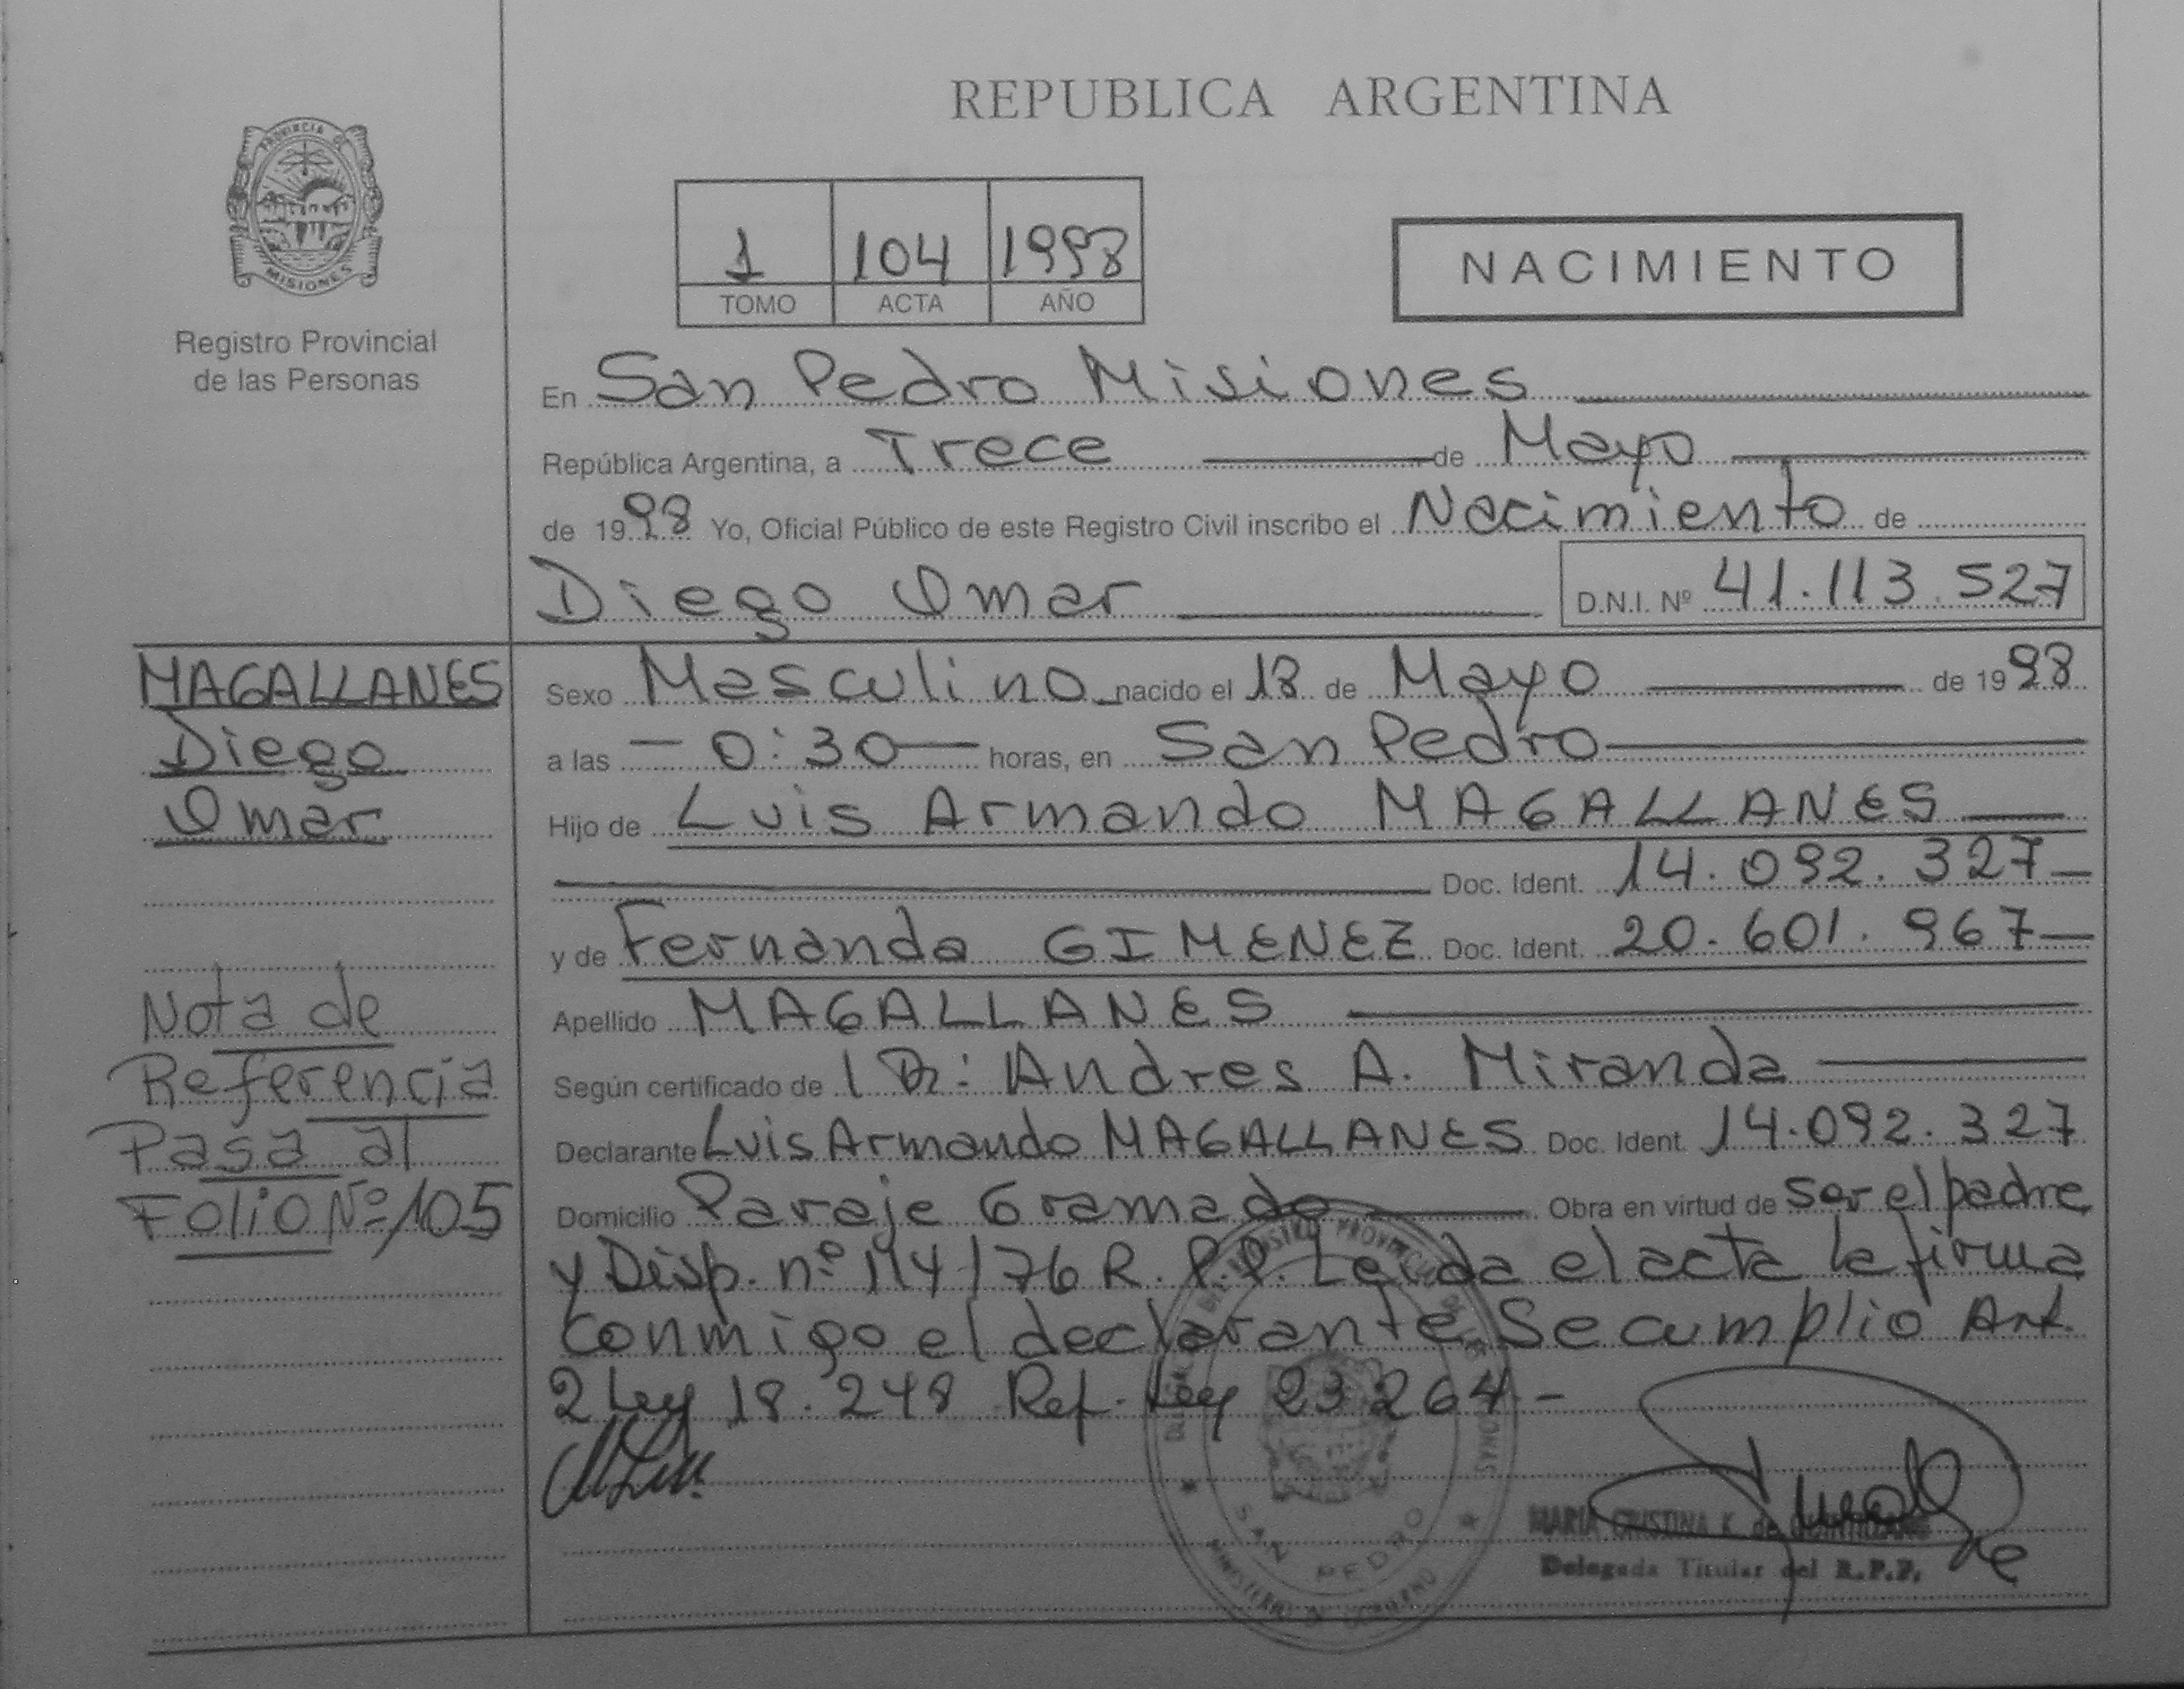 REPUBLICA ARGENTINA
PROVINCIA DE
MISIONES
Registro Provincial
de las Personas
1 104 1998
TOMO ACTA AÑO
NACIMIENTO
En San Pedro Misiones
República Argentina, a Trece de Mayo
de 1998 Yo, Oficial Público de este Registro Civil inscribo el Nacimiento de
Diego Omar D.N.I. Nº 41.113.527
MAGALLANES
Diego
Omar
Nota de
Referencia
Pasa al
Folio Nº 105
Sexo Masculino nacido el 13 de Mayo de 1998
a las 0:30 horas, en San Pedro
Hijo de Luis Armando MAGALLANES
Doc. Ident. 14.092.327
y de Fernanda GIMENEZ Doc. Ident. 20.601.967
Apellido MAGALLANES
Según certificado de l Dr: Andres A. Miranda
Declarante Luis Armando MAGALLANES Doc. Ident. 14.092.327
Domicilio Paraje Gramado Obra en virtud de ser el padre
y Disp. nº 114/76 R.P.P. Leida el acta la firma
conmigo el declarante Se cumplio Art.
2 Ley 18.248 Ref. Ley 23264-
SAN PEDRO
MARIA CRISTINA K. de
Delegada Titular del R.P.P.